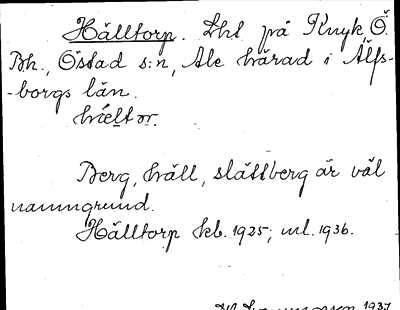 Hälltorp. Lht på Knyk Ö.
Bh., Östad s:n, Ale härad i Älfs-
-borgs län.
Berg, häll, slättberg är väl
namngrund.
Hälltorp kb. 1925; ml. 1936.
1937